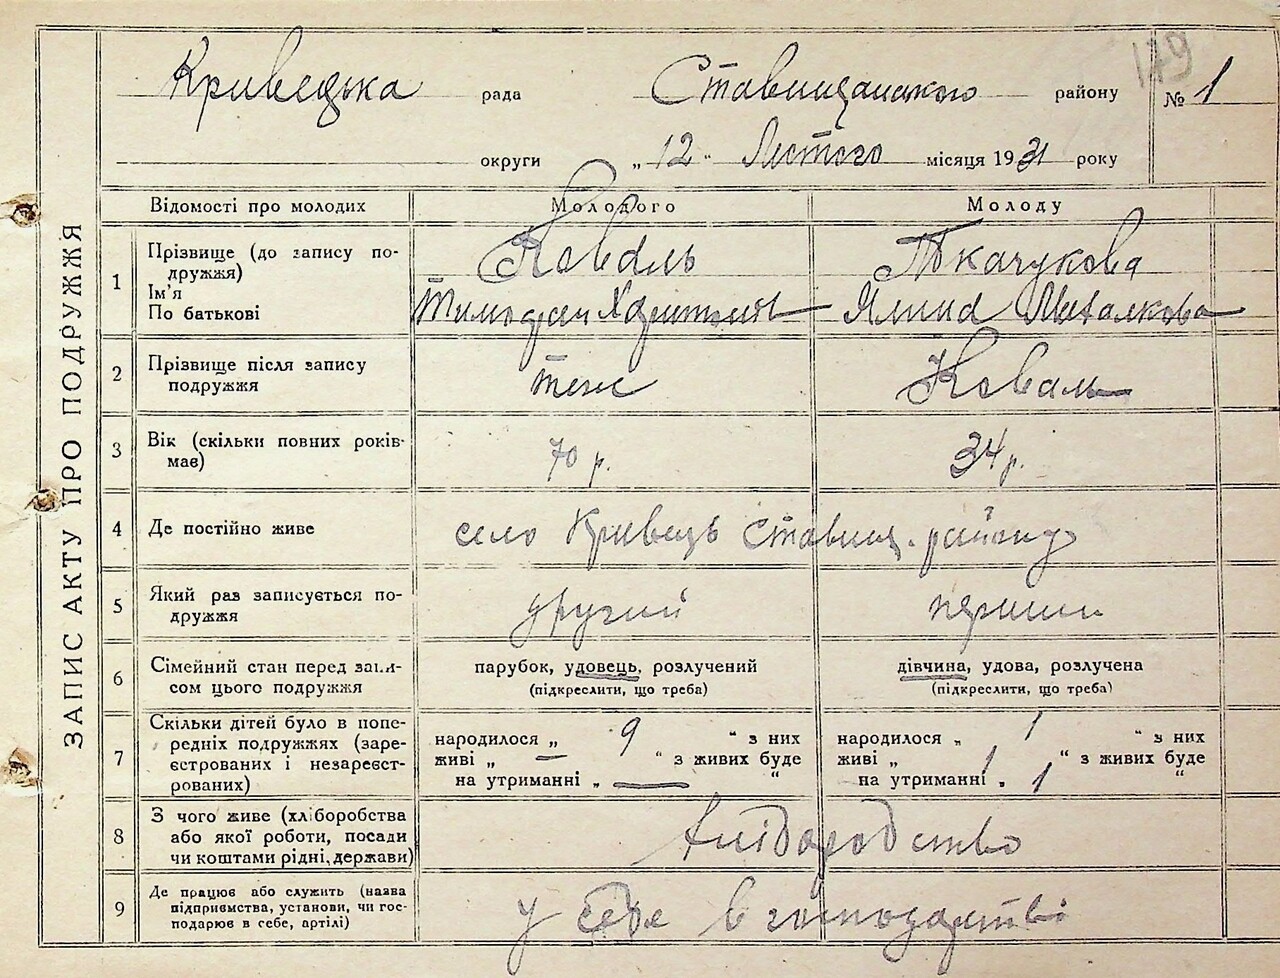 179
Кривецька рада Ставищанського району № 1
округи „ 12 " Лютого місяця 1931 року
ЗАПИС АКТУ ПРО ПОДРУЖЖЯ
Відомості про молодих Молодого Молоду
1 Прізвище (до запису по-
дружжя)
Ім'я
По батькові
Коваль Ткачукова
Тимофей
2 Прізвище після запису
подружжя
теж Коваль
3 Вік (скільки повних років
має)
70 р. 34 р.
4 Де постійно живе село Кривець Ставищ. району
5 Який раз записується по-
дружжя
другий перший
6 Сімейний стан перед запи-
сом цього подружжя
парубок, удовець, розлучений дівчина, удова, розлучена
(підкреслити, що треба) (підкреслити, що треба)
7 Скільки дітей було в попе-
редніх подружжях (заре-
єстрованих і незареєст-
рованих)
народилося „ 9 " з них народилося „ 1 " з них
живі „ — " з живих буде живі „ 1 " з живих буде
на утриманні „ — " на утриманні „ 1 "
8 З чого живе (хліборобства
або якої роботи, посади
чи коштами рідні, держави)
хліборобство
9 Де працює або служить (назва
підприємства, установи, чи гос-
подарює в себе, артілі)
у себе в господарстві